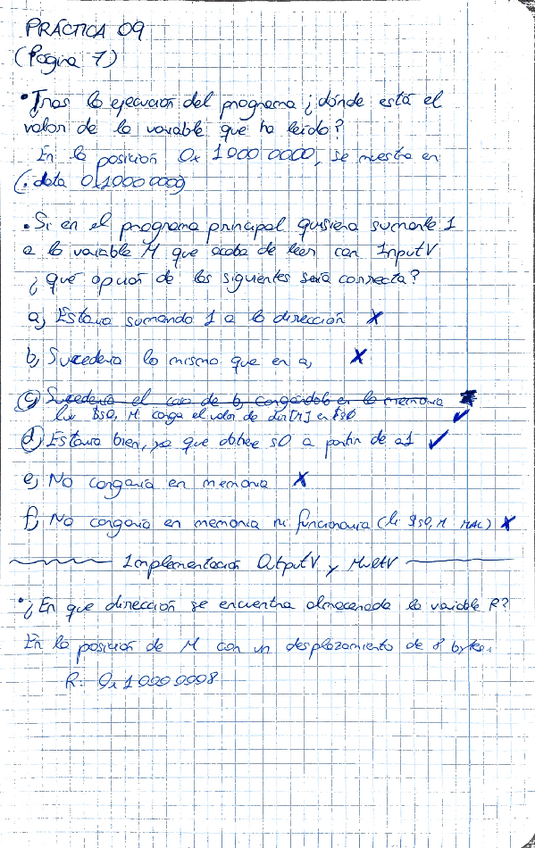 PRÁCTICA 09
(Página 7)
• Tras la ejecución del programa ¿dónde está el
valor de la variable que ha leído?
En la posición 0x 1000 0000, se muestra en
(.data 0x10000000)
• Si en el programa principal quisiera sumarle 1
a la variable M que acaba de leer con InputV
¿qué opción de las siguientes será correcta?
a) Estaría sumando 1 a la dirección X
b) Sucedería lo mismo que en a) X
c) Sucedería el caso de b, cargándolo en la memoria
lw $s0, M carga el valor de dir[M] en $s0 ✓
d) Estaría bien, ya que obtiene s0 a partir de a1 ✓
e) No cargaría en memoria X
f) No cargaría en memoria ni funcionaría (li $s0, M MAL) X
Implementación OutputV y MultV
• ¿En que dirección se encuentra almacenada la variable R?
En la posición de M con un desplazamiento de 8 bytes.
R: 0x10000008